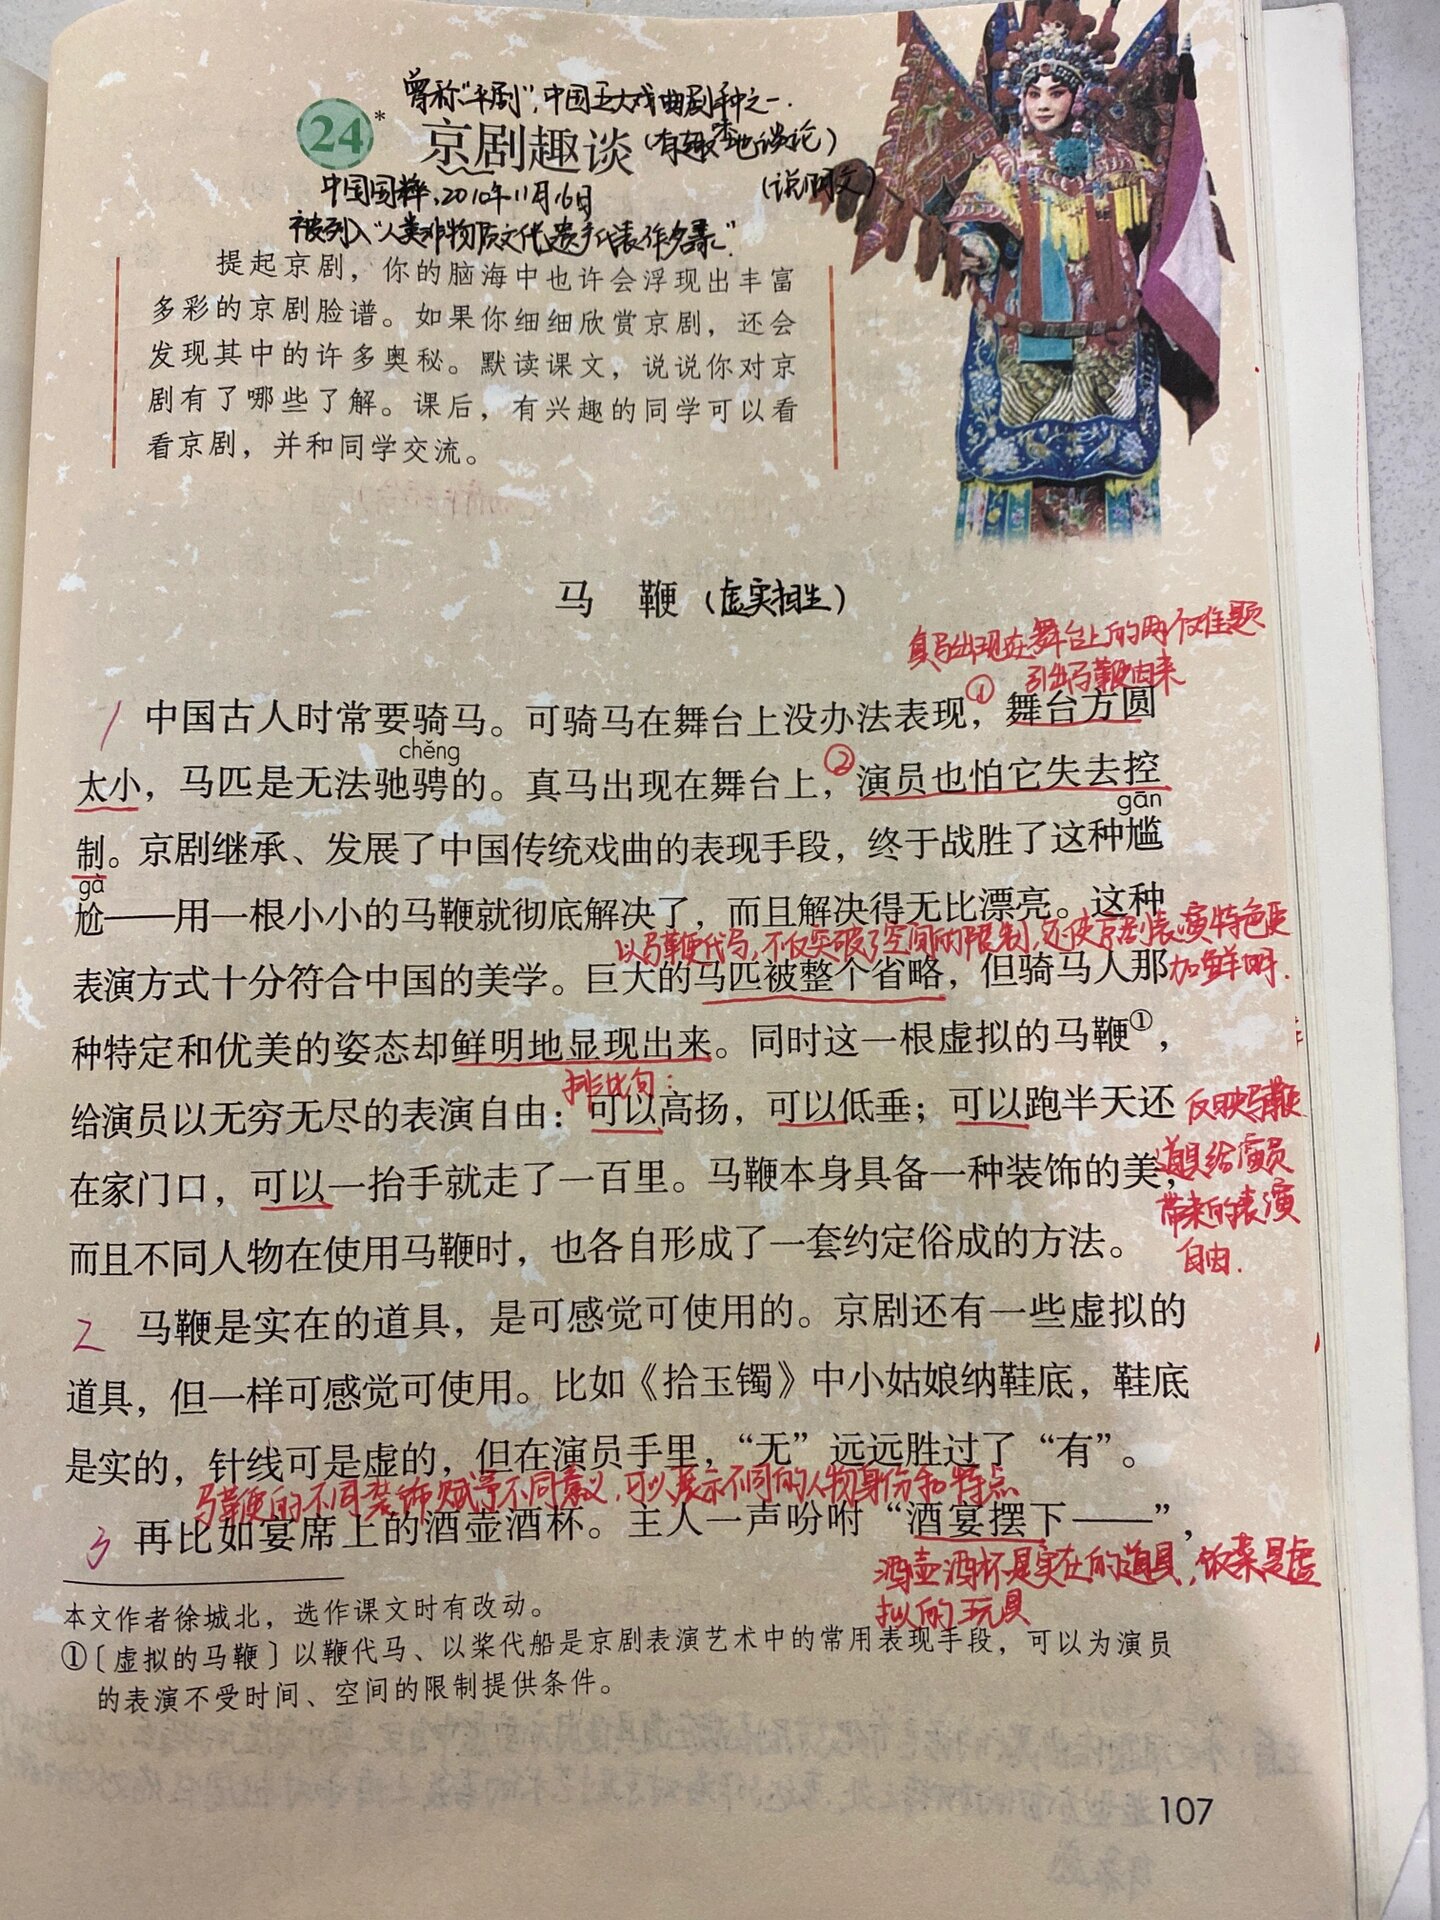 曾称“平剧”,中国五大戏曲剧种之一.
24*
京剧趣谈
(有趣地谈论)
(说明文)
中国国粹,2010年11月16日
被列入“人类非物质文化遗产代表作名录”.
提起京剧，你的脑海中也许会浮现出丰富
多彩的京剧脸谱。如果你细细欣赏京剧，还会
发现其中的许多奥秘。默读课文，说说你对京
剧有了哪些了解。课后，有兴趣的同学可以看
看京剧，并和同学交流。
马 鞭 (虚实相生)
真马出现在舞台上的两个难题
引出马鞭由来
1 中国古人时常要骑马。可骑马在舞台上没办法表现，①舞台方圆
chěng
太小，马匹是无法驰骋的。真马出现在舞台上，②演员也怕它失去控
gān
制。京剧继承、发展了中国传统戏曲的表现手段，终于战胜了这种尴
gà
尬——用一根小小的马鞭就彻底解决了，而且解决得无比漂亮。这种
以马鞭代马,不仅突破了空间的限制,还使京剧表演特色更
加鲜明.
表演方式十分符合中国的美学。巨大的马匹被整个省略，但骑马人那
种特定和优美的姿态却鲜明地显现出来。同时这一根虚拟的马鞭①，
排比句:
给演员以无穷无尽的表演自由：可以高扬，可以低垂；可以跑半天还
反映马鞭
道具给演员
带来的表演
自由.
在家门口，可以一抬手就走了一百里。马鞭本身具备一种装饰的美，
而且不同人物在使用马鞭时，也各自形成了一套约定俗成的方法。
2 马鞭是实在的道具，是可感觉可使用的。京剧还有一些虚拟的
道具，但一样可感觉可使用。比如《拾玉镯》中小姑娘纳鞋底，鞋底
是实的，针线可是虚的，但在演员手里，“无”远远胜过了“有”。
马鞭的不同装饰赋予不同意义,可以展示不同的人物身份和特点
3 再比如宴席上的酒壶酒杯。主人一声吩咐“酒宴摆下——”，
酒壶酒杯是实在的道具,饭菜是虚
拟的玩具
本文作者徐城北，选作课文时有改动。
①〔虚拟的马鞭〕以鞭代马、以桨代船是京剧表演艺术中的常用表现手段，可以为演员
的表演不受时间、空间的限制提供条件。
107